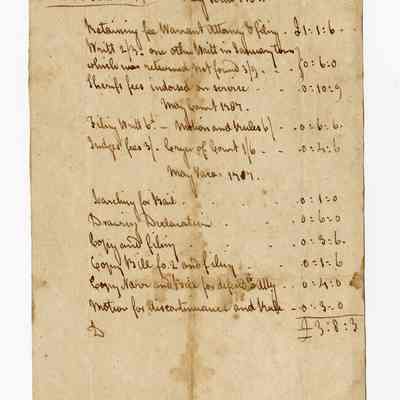 Retaining fee Warrant Attorny & filing - £1:1:6
Writt 2/3 - one other Writt in January Term
which was returned not found 3/9 - - 0:6:0
Sheriffs fees indorsed on service - - 0:10:9
May Court 1787.
Filing Writt 6d - Motion and Rules 6/ - - 0:6:6
Judges fees 3/ - Cryer of Court 1/6 - - 0:4:6
May Vaca. 1787.
Searching for Bail - 0:1:0
Drawing Declaration - 0:6:0
Copy and filing - 0:3:6
Copy Bill fo: 2 and filing - 0:1:6
Copy Narr and Bill for Atty - 0:4:0
Motion for discontinuance and Rule - 0:3:0
£3:8:3